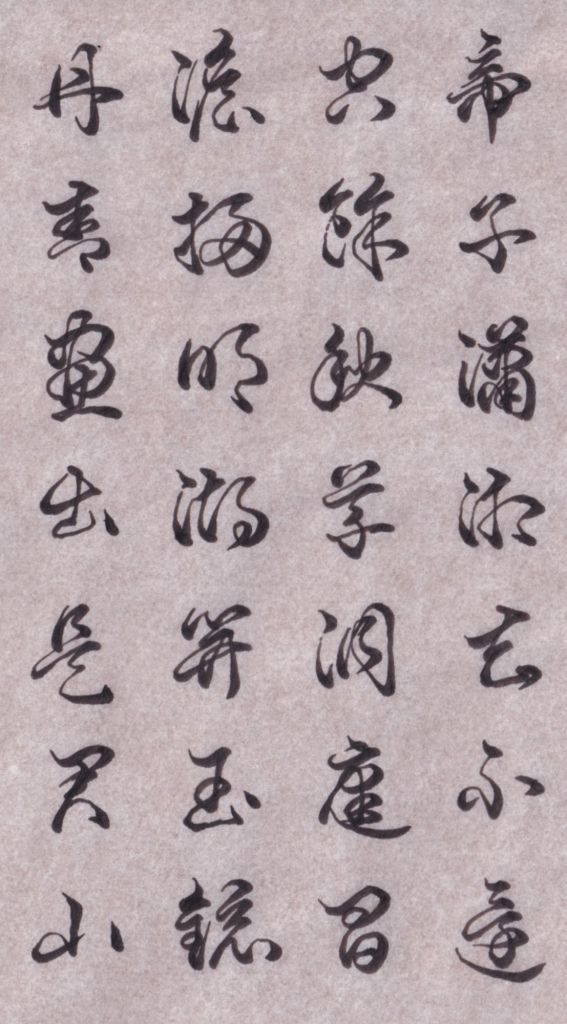 帝子瀟湘去不還
空餘秋草洞庭間
澹掃明湖開玉鏡
丹青畫出是君山